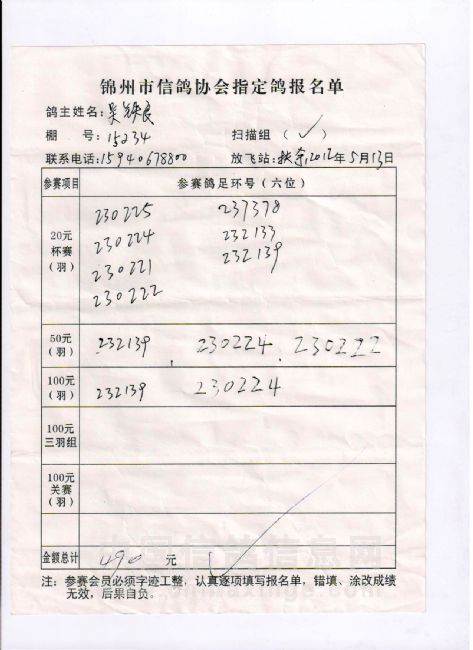 锦州市信鸽协会指定鸽报名单
鸽主姓名:吴铁良
棚 号:15234 扫描组(✓)
联系电话:15940678800 放飞站:秋奈,2012年5月13日
参赛项目 参赛鸽足环号(六位)
20元杯赛(羽) 230225 237378
230224 232133
230221 232139
230222
50元(羽) 232139, 230224, 230222
100元(羽) 232139 230224
100元三羽组
100元关赛(羽)
金额总计 490 元
注:参赛会员必须字迹工整,认真逐项填写报名单,错填、涂改成绩
无效,后果自负。